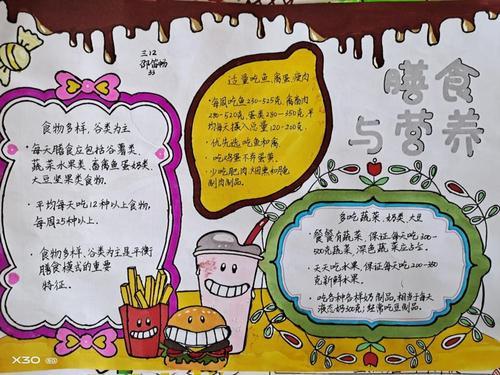 三12
33
膳食
与营养
食物多样，谷类为主
·每天膳食应包括谷薯类、
蔬菜水果类、畜禽鱼蛋奶类、
大豆坚果类食物。
·平均每天吃12种以上食物，
每周25种以上。
·食物多样、谷类为主是平衡
膳食模式的重要
特征。
适量吃鱼、禽蛋、瘦肉
·每周吃鱼280-525克，畜禽肉
280-520克，蛋类280-350克，平
均每天摄入总量120-200克。
·优先选吃鱼和禽
·吃鸡蛋不弃蛋黄。
·少吃肥肉、烟熏和腌
制肉制品。
多吃蔬菜、奶类、大豆
·餐餐有蔬菜，保证每天吃300-
500克蔬菜，深色蔬菜应占
·天天吃水果，保证每天吃200-350
克新鲜水果。
·吃各种各样奶制品，相当于每天
液态奶300克；经常吃豆制品。
X30